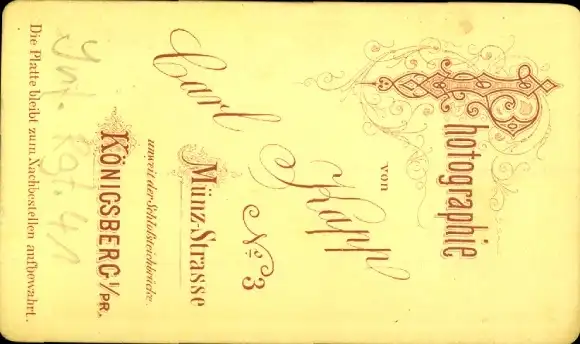 Photographie
von
Carl Kapp
Münz-Strasse No 3
unweit der Schloßteichbrücke.
KÖNIGSBERG I/PR.
Inf. Rgt. 41
Die Platte bleibt zum Nachbestellen aufbewahrt.